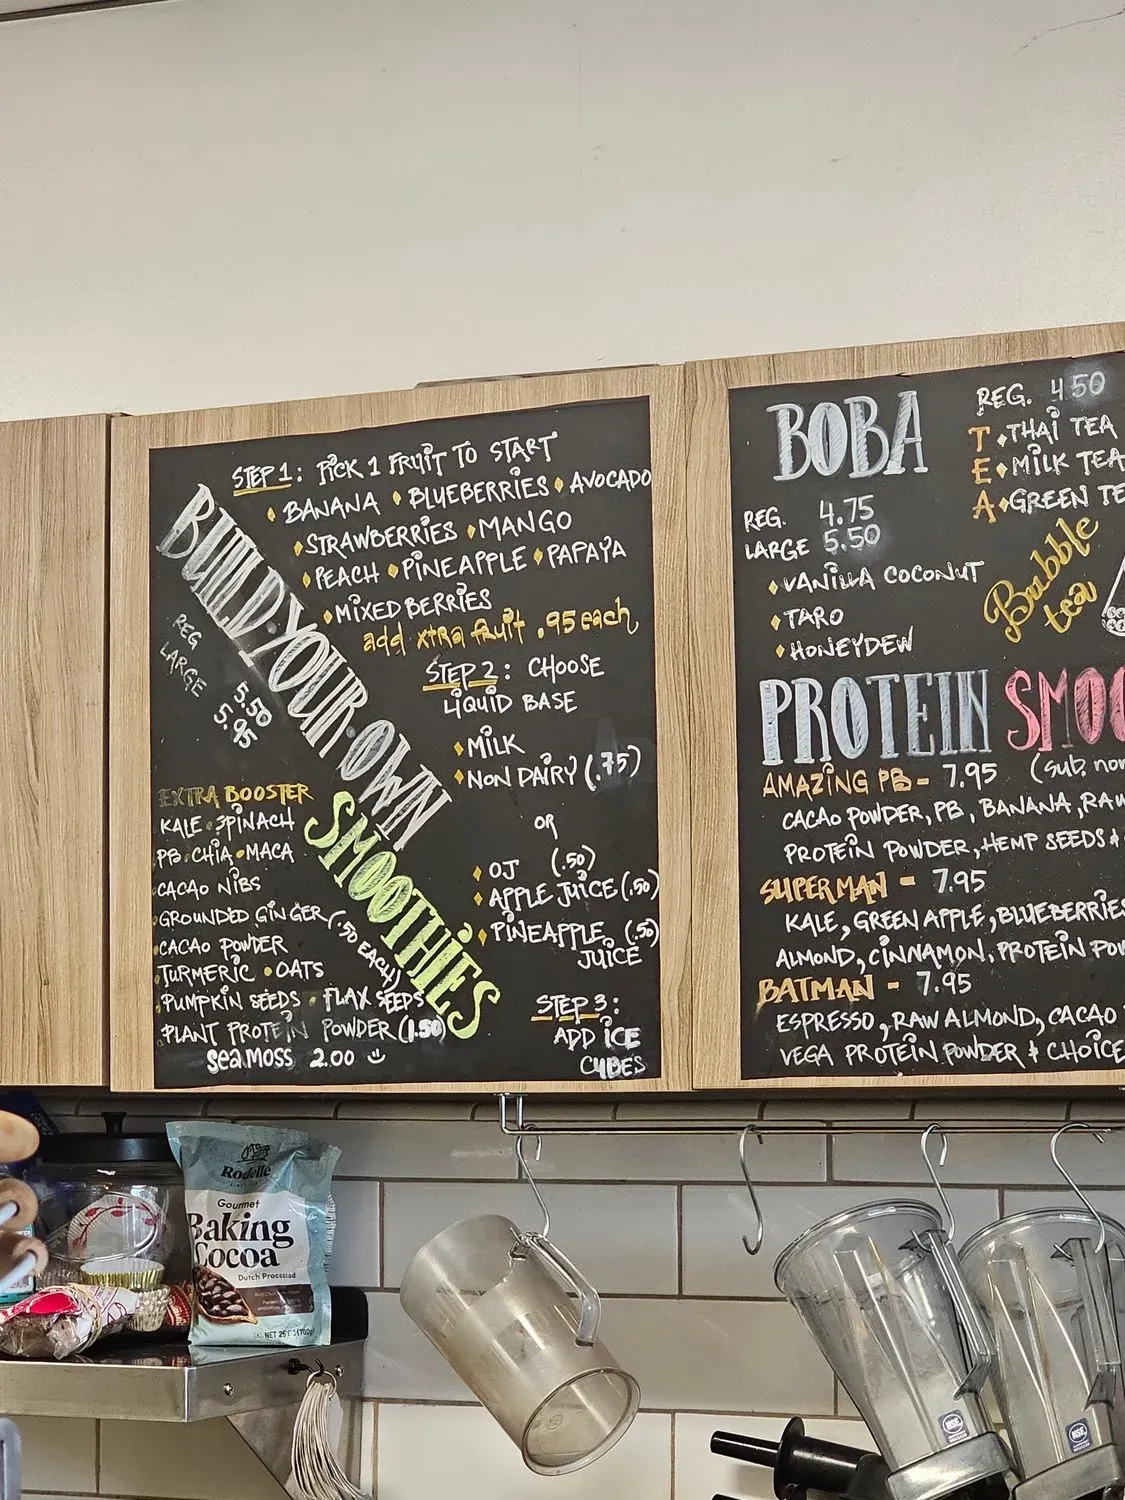 STEP 1: PICK 1 FRUIT TO START
BANANA BLUEBERRIES AVOCADO
STRAWBERRIES MANGO
PEACH PINEAPPLE PAPAYA
MIXED BERRIES
add xtra fruit .95 each
BUILD·YOUR·OWN
SMOOTHIES
REG 5.50
LARGE 5.95
STEP 2: CHOOSE
LIQUID BASE
MILK
NON DAIRY (.75)
OR
OJ (.50)
APPLE JUICE (.50)
PINEAPPLE (.50)
JUICE
STEP 3:
ADD ICE
CUBES
EXTRA BOOSTER
KALE SPINACH
PB CHIA MACA
CACAO NIBS
GROUNDED GINGER (.50 EACH)
CACAO POWDER
TURMERIC OATS
PUMPKIN SEEDS FLAX SEEDS
PLANT PROTEIN POWDER (1.50)
sea moss 2.00
BOBA
REG. 4.75
LARGE 5.50
VANILLA COCONUT
TARO
HONEYDEW
REG. 4.50
TEA
THAI TEA
MILK TEA
GREEN
Bubble
tea
PROTEIN
AMAZING PB - 7.95 (sub.
CACAO POWDER, PB, BANANA, RAW
PROTEIN POWDER, HEMP SEEDS &
SUPERMAN - 7.95
KALE, GREEN APPLE, BLUEBERRIES
ALMOND, CINNAMON, PROTEIN
BATMAN - 7.95
ESPRESSO, RAW ALMOND, CACAO
VEGA PROTEIN POWDER & CHOICE
Rodelle
Gourmet
Baking
Cocoa
Dutch Processed
NSF
NSF